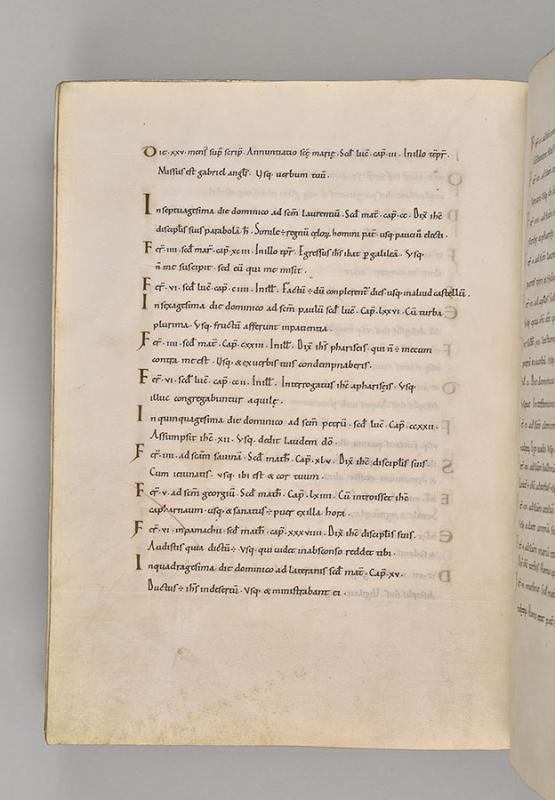 Die · xxv · mens sup scrip · Annuntiatio scę marię · Scd luc̄ · cap̄ · iii · In illo tēpr ·
Missus est gabriel angls · Usq · verbum tuū ·
In septuagesima die dominico ad scm̄ laurentiū · Scd mat̄ · cap̄ · cc · Dix̄ ihc̄
discipulis suis parabolā h̄ · Simile ÷ regnū celoꝝ homini pat̄ · usq · pauci ū electi ·
Fer̄ · iiii · scd mar̄ · cap̄ · xciii · In illo tp̄r · Egressus ihs̄ ibat p galileā · Usq ·
n̄ me suscepit · sed eū qui me misit ·
Fer̄ · vi · scd luc̄ · cap̄ · ciiii · In ill̄ · Factū ÷ dū complerent̄ dies · usq · in aliud castellū ·
In sexagesima die dominico ad scm̄ paulū scd luc̄ · Cap̄ · lxxvi · Cū turba
plurima · Usq · fructū afferunt in patientia ·
Fer̄ · iiii · scd mat̄ · cap̄ · cxxiii · In ill̄ · Dix̄ ihs̄ phariseis · qui n̄ ÷ mecum
contra me est · Usq · & ex verbis tuis condempnaberis ·
Fer̄ · vi · scd luc̄ · cap̄ · ccii · In ill̄ · Interrogatus ihc̄ a phariseis · Usq
illuc congregabuntur aquilę ·
In quinquagesima die dominico ad scm̄ petrū · scd luc̄ · Cap̄ · ccxxii ·
Assumpsit ihc̄ · xii · Usq · dedit laudem dō ·
Fer̄ · iiii · ad scam̄ savinā · Scd math̄ · Cap̄ · xlv · Dix̄ ihc̄ disciplis suis ·
Cum ieiunatis · usq · ibi est & cor tuum ·
Fer̄ · v · ad scm̄ georgiū · Scd math̄ · Cap̄ · lxiiii · Cū introisset ihc̄
capharnaum · usq · & sanatus ÷ puer ex illa hora ·
Fer̄ · vi · in pamachii · scd math̄ · cap̄ · xxxviiii · Dix̄ ihc̄ disciplis suis ·
Audistis quia dictū ÷ · Usq · qui videt in absconso reddet tibi ·
In quadragesima · die dominico ad lateranis scd mat̄ · Cap̄ · xv ·
Ductus ÷ ihs̄ in desertū · Usq · & ministrabant ei ·